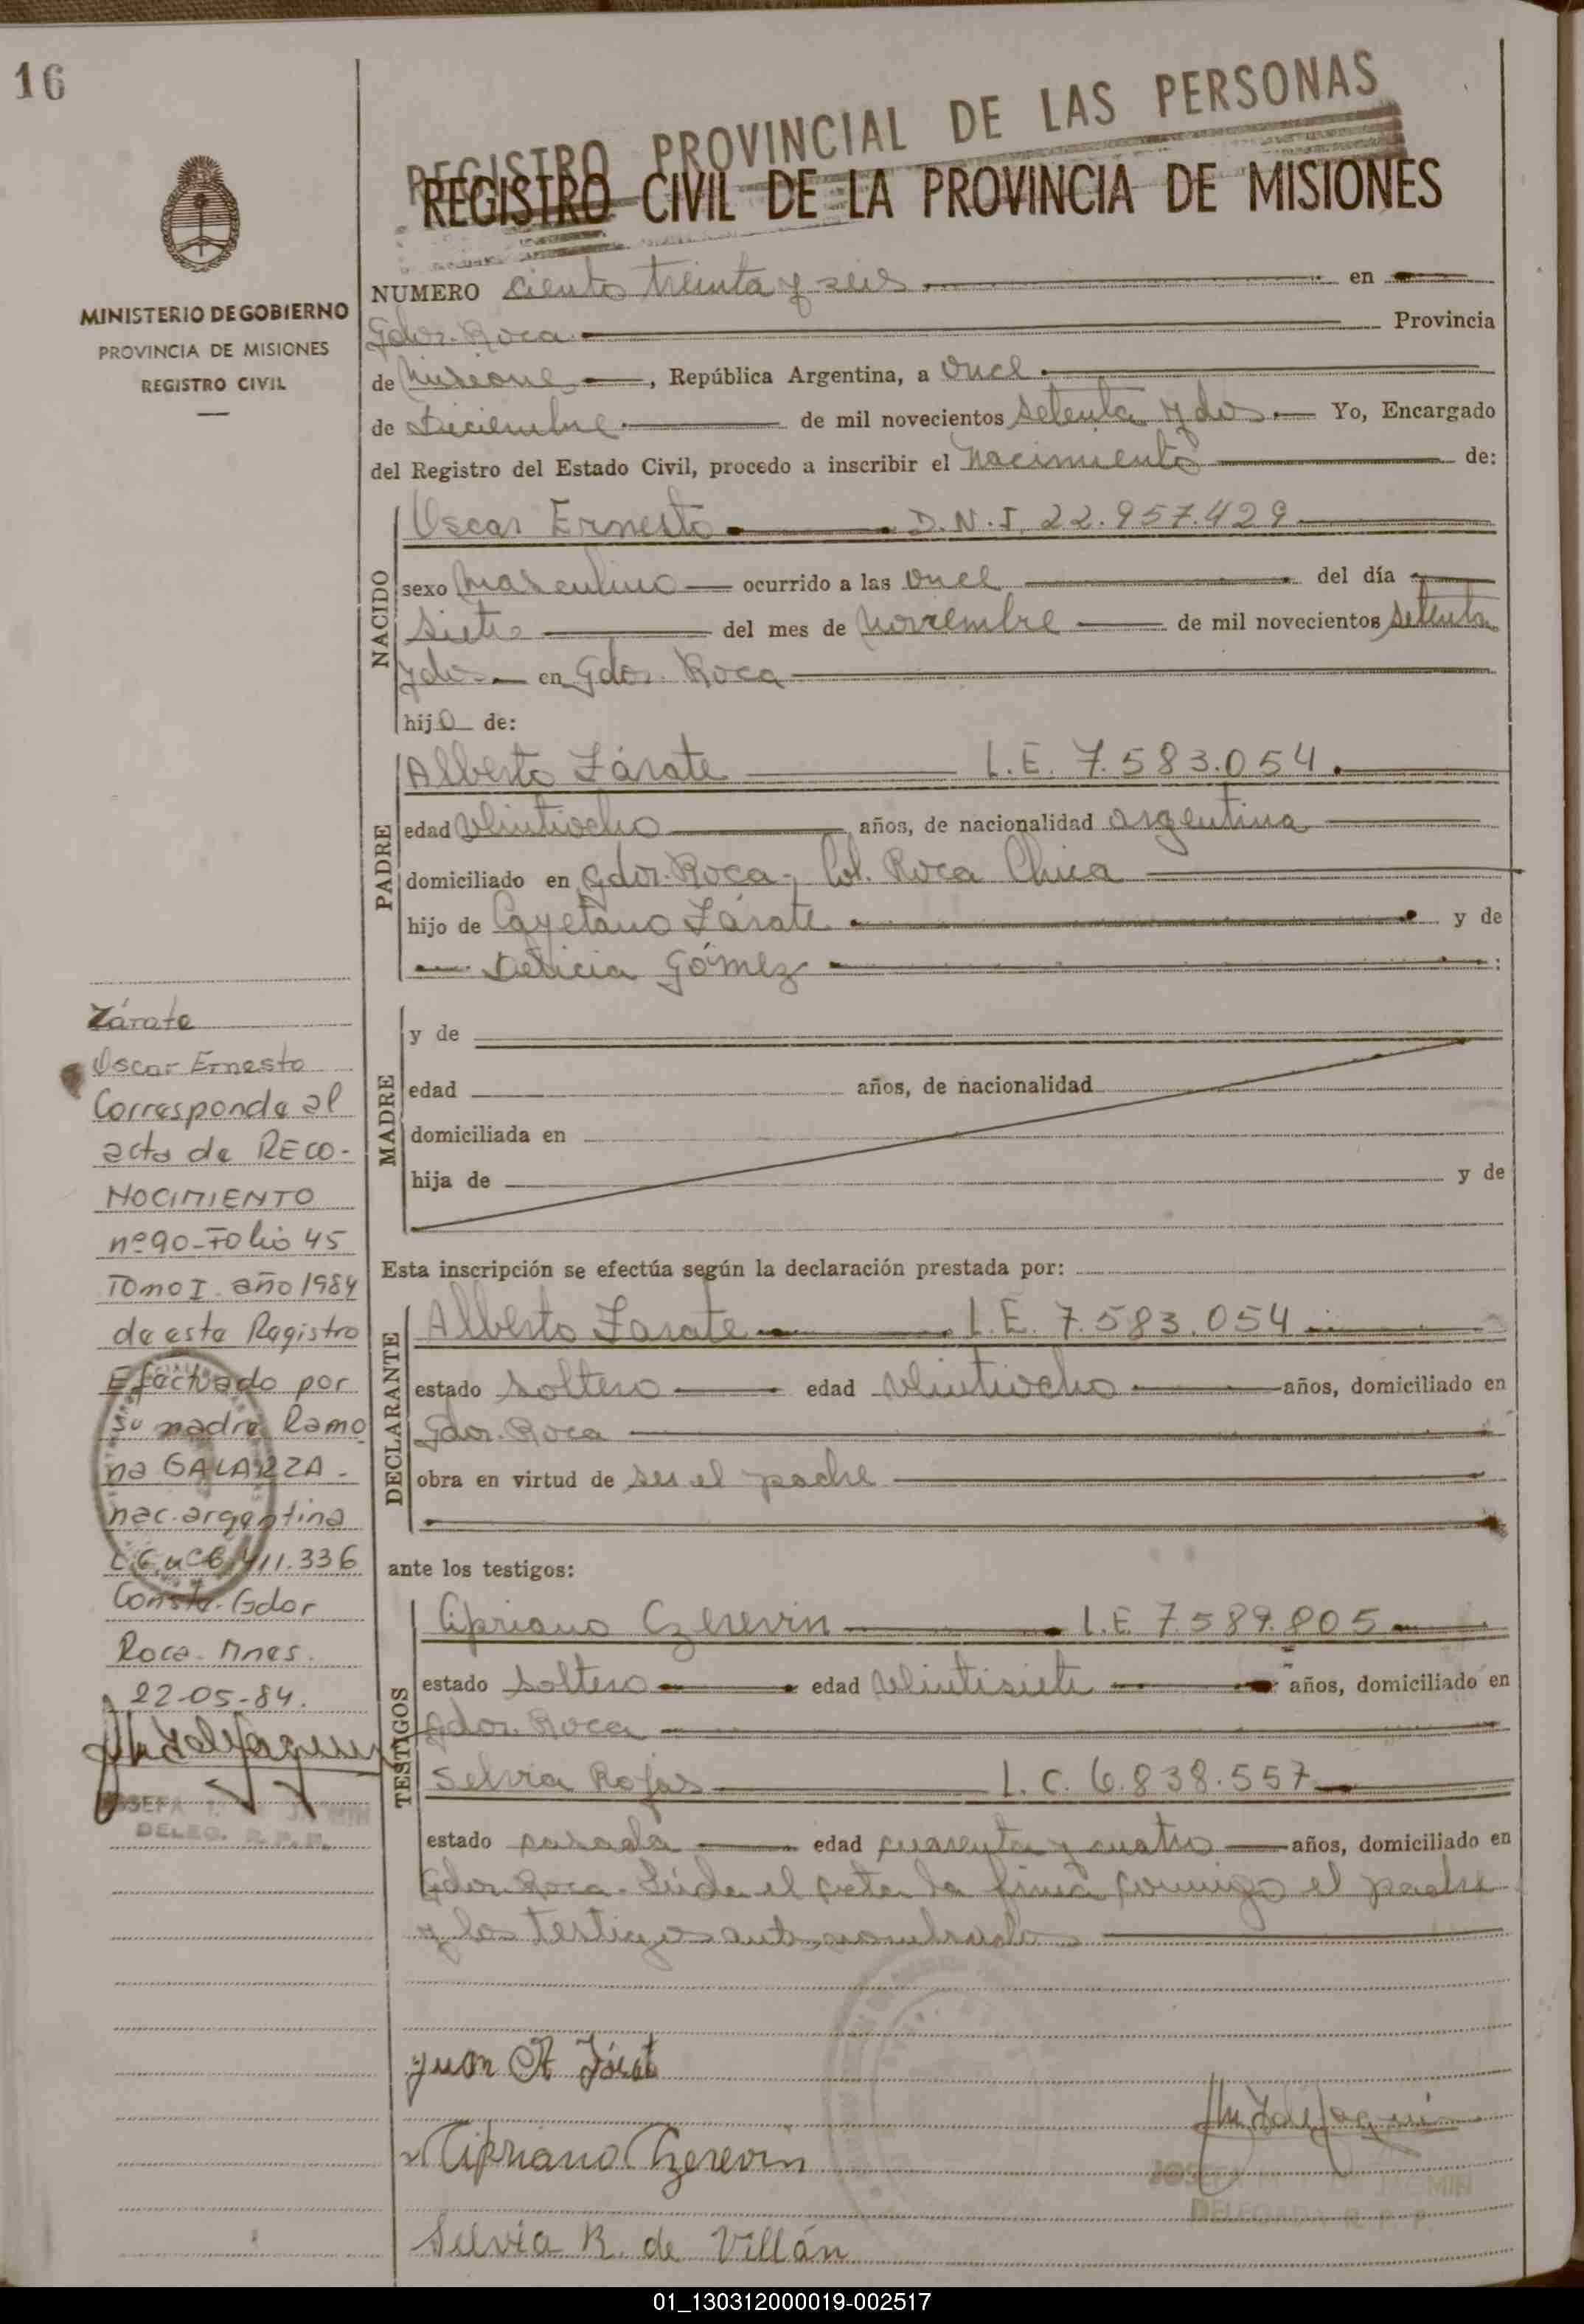 16
REGISTRO PROVINCIAL DE LAS PERSONAS
REGISTRO CIVIL DE LA PROVINCIA DE MISIONES
MINISTERIO DE GOBIERNO
PROVINCIA DE MISIONES
REGISTRO CIVIL
NUMERO ciento treinta y seis en
Gdor. Roca Provincia
de Misiones, República Argentina, a once
de Diciembre de mil novecientos setenta y dos. Yo, Encargado
del Registro del Estado Civil, procedo a inscribir el nacimiento de:
NACIDO
Oscar Ernesto D.N.I. 22.957.429
sexo masculino ocurrido a las once del día
siete del mes de noviembre de mil novecientos setenta
y dos en Gdor. Roca
hijo de:
PADRE
Alberto Zárate L.E. 7.583.054.
edad veintiocho años, de nacionalidad argentina
domiciliado en Gdor. Roca, Col. Roca Chica
hijo de Cayetano Zárate y de
Delicia Gómez :
MADRE
y de
edad años, de nacionalidad
domiciliada en
hija de y de
Esta inscripción se efectúa según la declaración prestada por:
DECLARANTE
Alberto Zarate L.E. 7.583.054
estado soltero edad veintiocho años, domiciliado en
Gdor. Roca
obra en virtud de ser el padre
ante los testigos:
TESTIGOS
Cipriano Czerevin L.E. 7.589.805
estado soltero edad veintisiete años, domiciliado en
Gdor. Roca
Selvia Rojas L.C. 6.838.557
estado casada edad cuarenta y cuatro años, domiciliado en
Gdor. Roca. Leída el acta la firma conmigo el padre
y los testigos antes nombrados
Juan A Zárat
Cipriano Czerevin
Selvia R. de Villán
JOSEFA JACMIN
DELEGADA R. P. P.
Zárate
Oscar Ernesto
Corresponde al
acta de RECO-
NOCIMIENTO
nº 90-Folio 45
Tomo I año 1984
de este Registro
Efectuado por
su madre Ramo
na GALARZA-
nac. argentina
411.336
Gdor
Roca- Mnes.
22-05-84.
JOSEFA
DELEG. R. P. P.
01_130312000019-002517